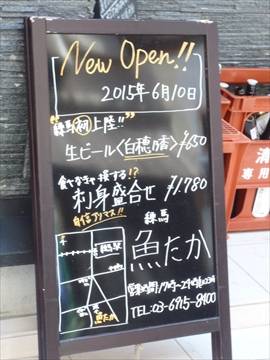 New Open!!
2015年6月10日
"練馬初上陸!!"
生ビール〈白穂乃香〉¥650
食べなきゃ損する!?
刺身盛合せ ¥1,780
自信アリマス!!
練馬
魚たか
営業時間/17時〜24時
TEL:03-6915-8400
魚たか